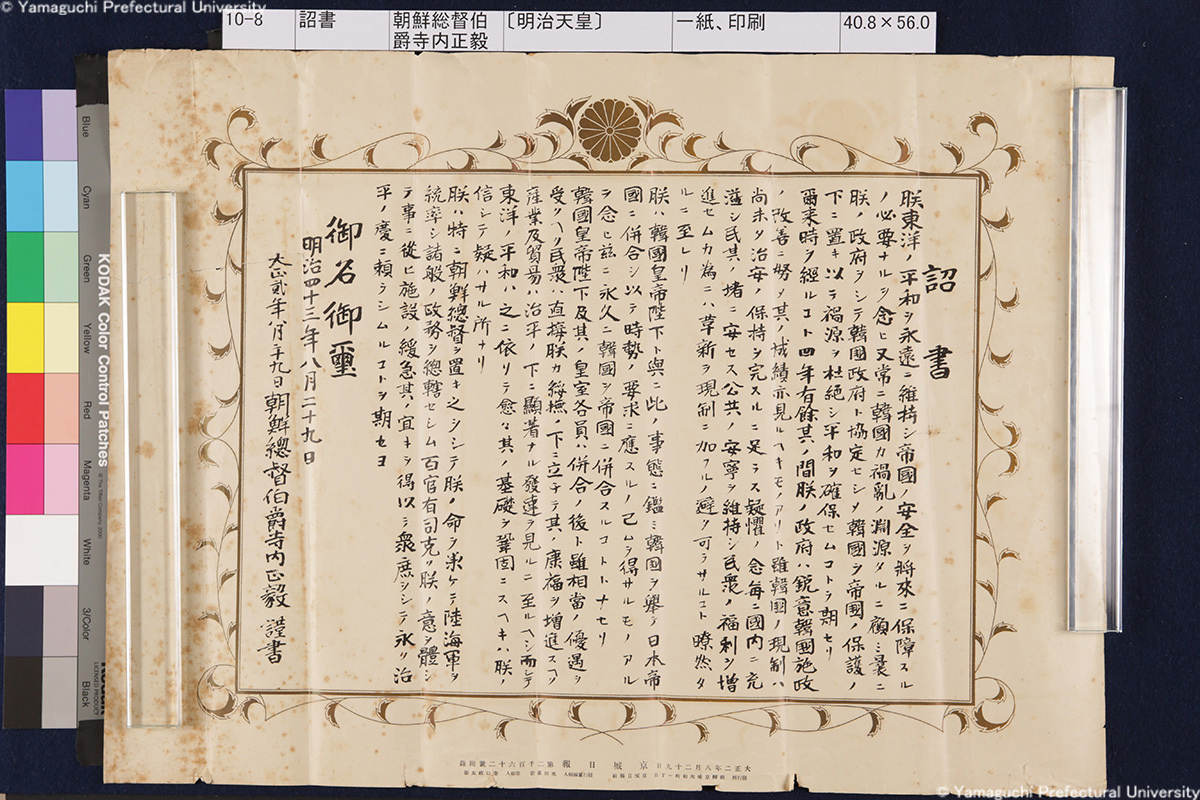 © Yamaguchi Prefectural University
10-8 詔書 朝鮮総督伯爵寺内正毅 〔明治天皇〕 一紙、印刷 40.8×56.0
詔書
朕東洋ノ平和ヲ永遠ニ維持シ帝國ノ安全ヲ將來ニ保障スル
ノ必要ナルヲ念ヒ又常ニ韓國カ禍亂ノ淵源タルニ顧ミ曩ニ
朕ノ政府ヲシテ韓國政府ト協定セシメ韓國ヲ帝國ノ保護ノ
下ニ置キ以テ禍源ヲ杜絶シ平和ヲ確保セムコトヲ期セリ
爾来時ヲ經ルコト四年有餘其ノ間朕ノ政府ハ鋭意韓國施政
ノ改善ニ努メ其ノ成績亦見ルヘキモノアリト雖韓國ノ現制ハ
尚未タ治安ノ保持ヲ完スルニ足ラス疑懼ノ念毎ニ國内ニ充
溢シ民其ノ堵ニ安セス公共ノ安寧ヲ維持シ民衆ノ福利ヲ増
進セムカ為ニハ革新ヲ現制ニ加フルノ避ク可ラサルコト瞭然タ
ルニ至レリ
朕ハ韓國皇帝陛下ト與ニ此ノ事態ニ鑑ミ韓國ヲ擧テ日本帝
國ニ併合シ以テ時勢ノ要求ニ應スルノ已ムヲ得サルモノアル
ヲ念ヒ茲ニ永久ニ韓國ヲ帝國ニ併合スルコトトナセリ
韓國皇帝陛下及其ノ皇室各員ハ併合ノ後ト雖相當ノ優遇ヲ
受クヘク民衆ハ直接朕カ綏撫ノ下ニ立チテ其ノ康福ヲ増進スヘク
産業及貿易ハ治平ノ下ニ顯著ナル發達ヲ見ルニ至ルヘシ而シテ
東洋ノ平和ハ之ニ依リテ愈々其ノ基礎ヲ鞏固ニスヘキハ朕ノ
信シテ疑ハサル所ナリ
朕ハ特ニ朝鮮總督ヲ置キ之ヲシテ朕ノ命ヲ承ケテ陸海軍ヲ
統率シ諸般ノ政務ヲ總轄セシム百官有司克ク朕ノ意ヲ體シ
テ事ニ從ヒ施設ノ緩急其ノ宜キヲ得以テ衆庶ヲシテ永ク治
平ノ慶ニ頼ラシムルコトヲ期セヨ
御名御璽
明治四十三年八月二十九日
大正貳年八月二十九日朝鮮總督伯爵寺内正毅謹書
大正二年八月二十九日 京城日報 第二千百六十二號附録
KODAK Color Control Patches
Blue
Cyan
Green
Yellow
Red
Magenta
White
3/Color
Black
© Yamaguchi Prefectural University